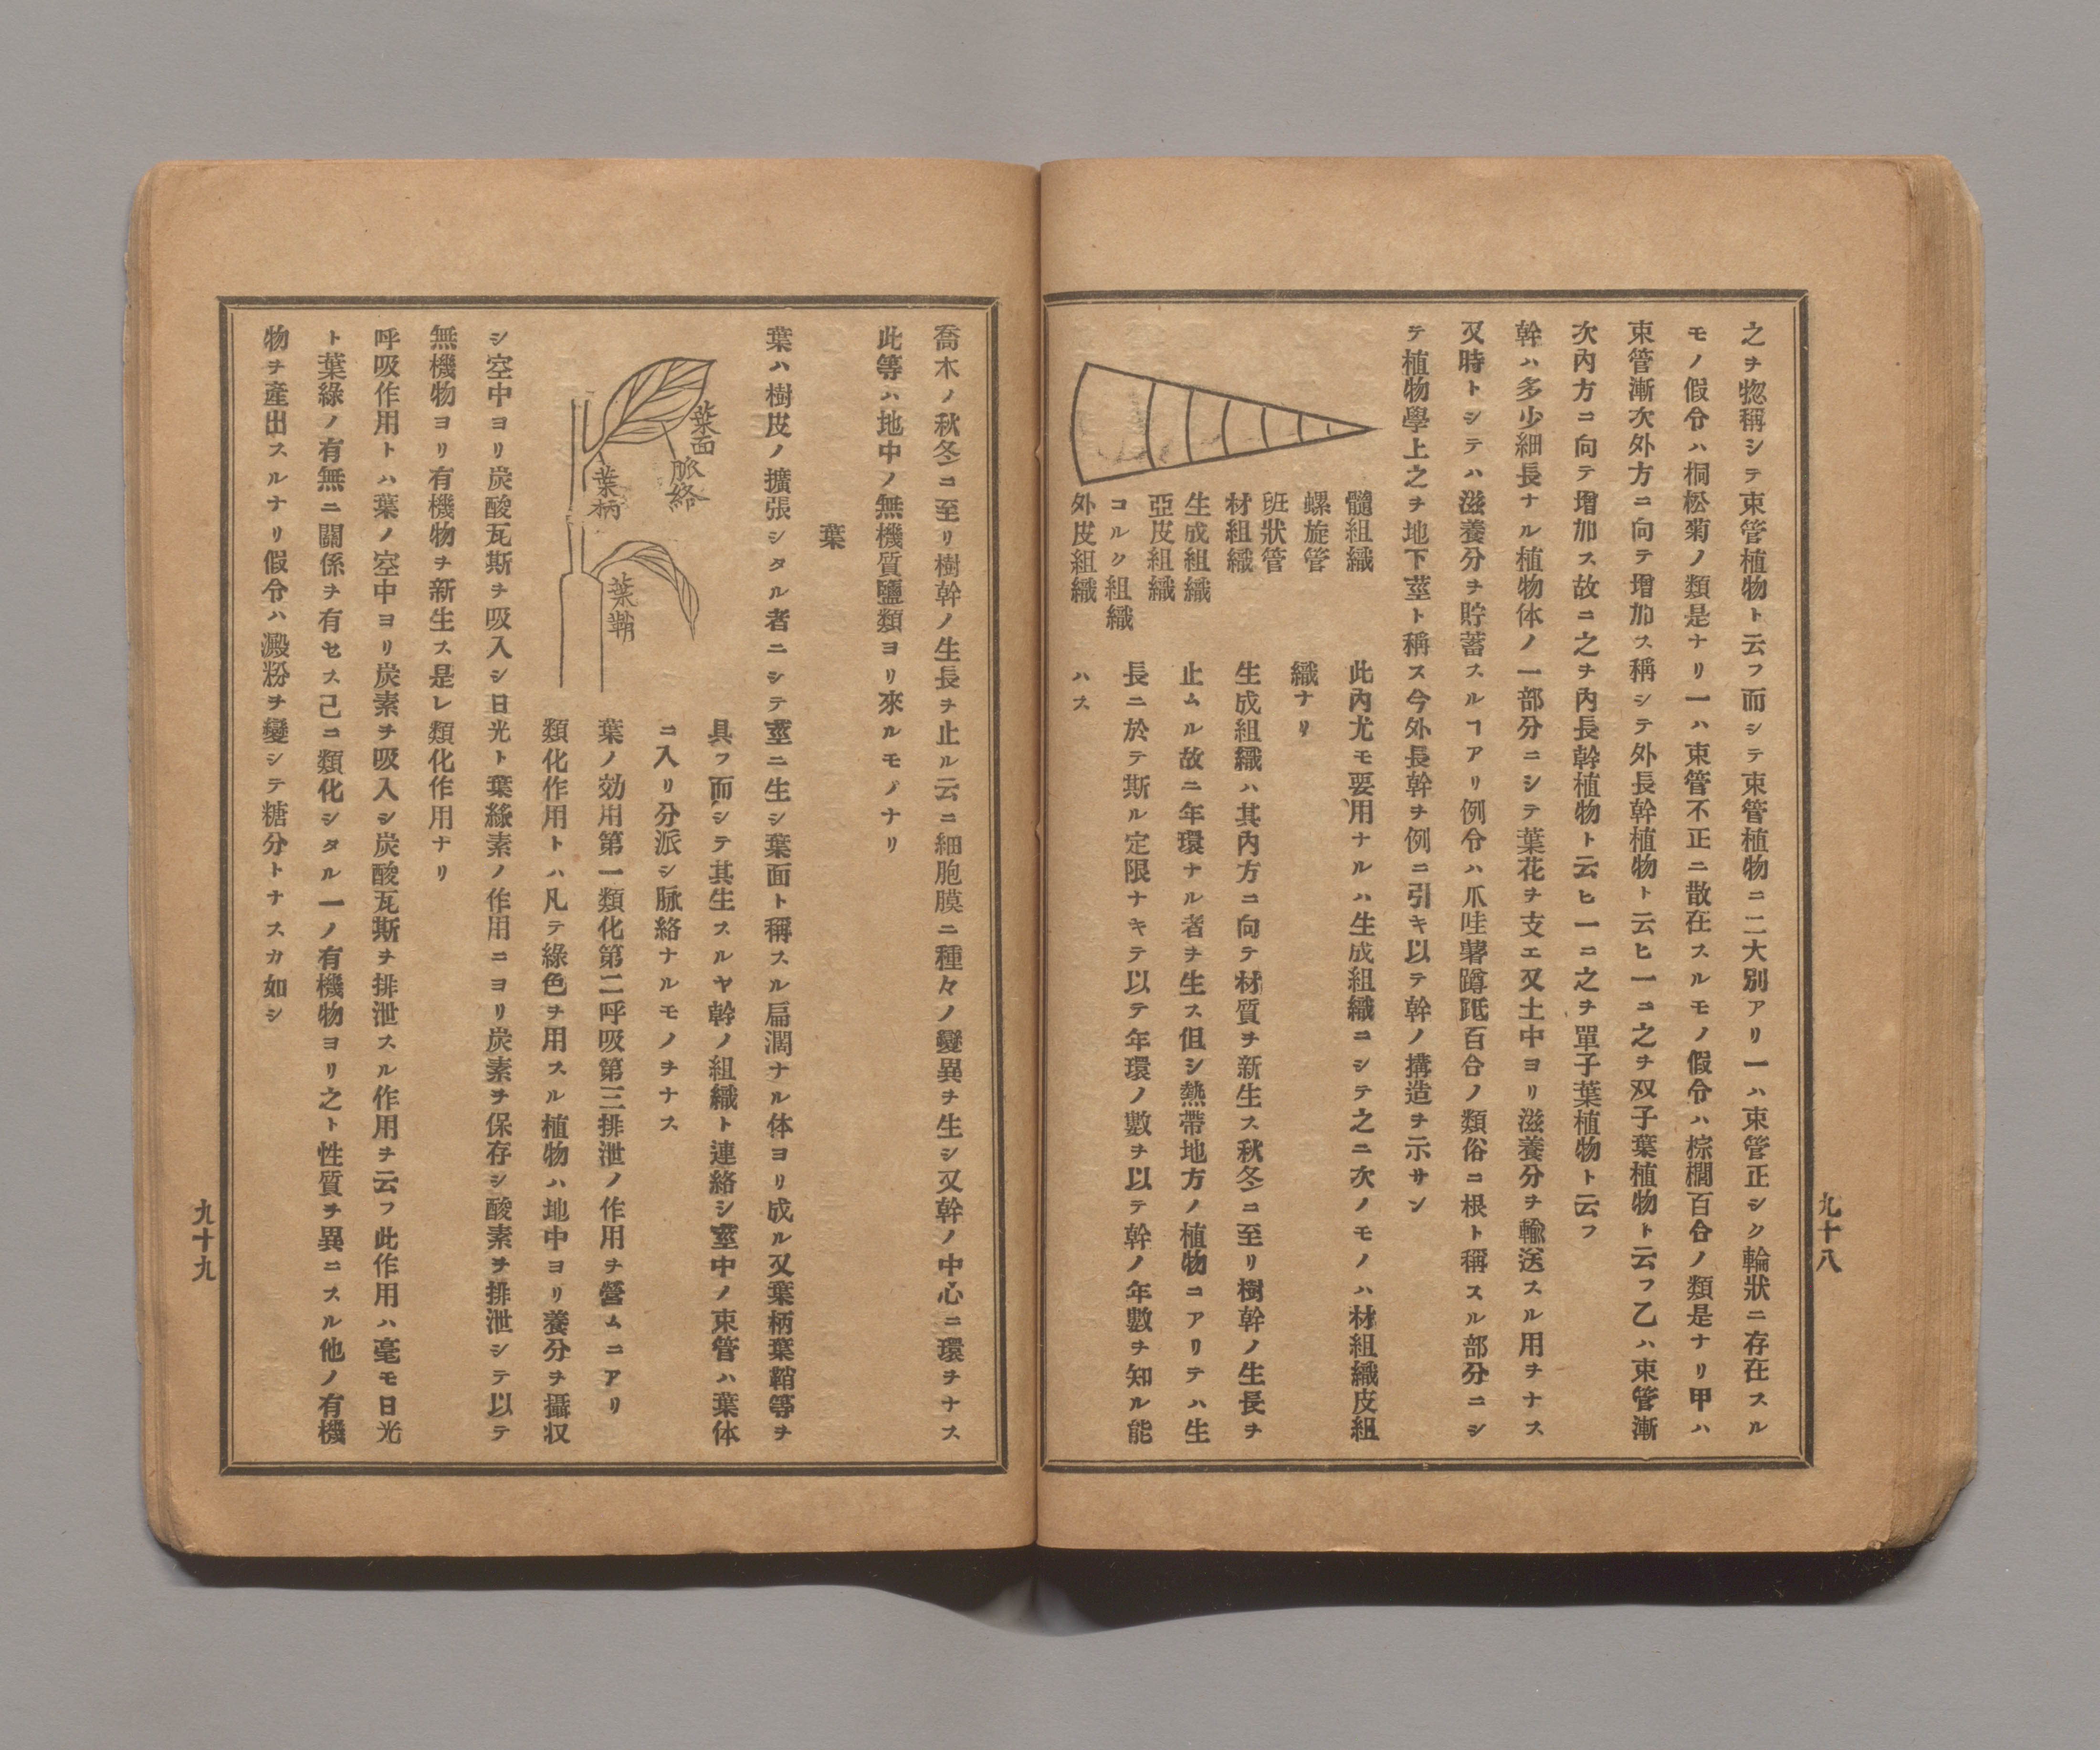 之ヲ惣稱シテ束管植物ト云フ而シテ束管植物ニ二大別アリ一ハ束管正シク輪狀ニ存在スル
モノ假令ハ桐松菊ノ類是ナリ一ハ束管不正ニ散在スルモノ假令ハ棕櫚百合ノ類是ナリ甲ハ
束管漸次外方ニ向テ增加ス稱シテ外長幹植物ト云ヒ一ニ之ヲ双子葉植物ト云フ乙ハ束管漸
次內方ニ向テ增加ス故ニ之ヲ內長幹植物ト云ヒ一ニ之ヲ單子葉植物ト云フ
幹ハ多少細長ナル植物体ノ一部分ニシテ葉花ヲ支エ又土中ヨリ滋養分ヲ輸送スル用ヲナス
又時トシテハ滋養分ヲ貯蓄スルヿアリ例令ハ爪哇薯蹲鴟百合ノ類俗ニ根ト稱スル部分ニシ
テ植物學上之ヲ地下莖ト稱ス今外長幹ヲ例ニ引キ以テ幹ノ搆造ヲ示サン
髓組織
螺旋管
班狀管
材組織
生成組織
亞皮組織
コルク組織
外皮組織
此內尤モ要用ナルハ生成組織ニシテ之ニ次ノモノハ材組織皮組
織ナリ
生成組織ハ其內方ニ向テ材質ヲ新生ス秋冬ニ至リ樹幹ノ生長ヲ
止ムル故ニ年環ナル者ヲ生ス但シ熱帶地方ノ植物ニアリテハ生
長ニ於テ斯ル定限ナキテ以テ年環ノ數ヲ以テ幹ノ年數ヲ知ル能
ハス
九十八
喬木ノ秋冬ニ至リ樹幹ノ生長ヲ止ル云ニ細胞膜ニ種々ノ變異ヲ生シ又幹ノ中心ニ環ヲナス
此等ハ地中ノ無機質鹽類ヨリ來ルモノナリ
葉
葉ハ樹皮ノ擴張シタル者ニシテ莖ニ生シ葉面ト稱スル扁濶ナル体ヨリ成ル又葉柄葉鞘等ヲ
具フ而シテ其生スルヤ幹ノ組織ト連絡シ莖中ノ束管ハ葉体
ニ入リ分派シ脉絡ナルモノヲナス
葉ノ効用第一類化第二呼吸第三排泄ノ作用ヲ營ムニアリ
類化作用トハ凡テ綠色ヲ用スル植物ハ地中ヨリ養分ヲ攝収
シ空中ヨリ炭酸瓦斯ヲ吸入シ日光ト葉綠素ノ作用ニヨリ炭素ヲ保存シ酸素ヲ排泄シテ以テ
無機物ヨリ有機物ヲ新生ス是レ類化作用ナリ
呼吸作用トハ葉ノ空中ヨリ炭素ヲ吸入シ炭酸瓦斯ヲ排泄スル作用ヲ云フ此作用ハ毫モ日光
ト葉綠ノ有無ニ關係ヲ有セス己ニ類化シタル一ノ有機物ヨリ之ト性質ヲ異ニスル他ノ有機
物ヲ產出スルナリ假令ハ澱粉ヲ變シテ糖分トナスカ如シ
葉面
脈絡
葉柄
葉鞘
九十九